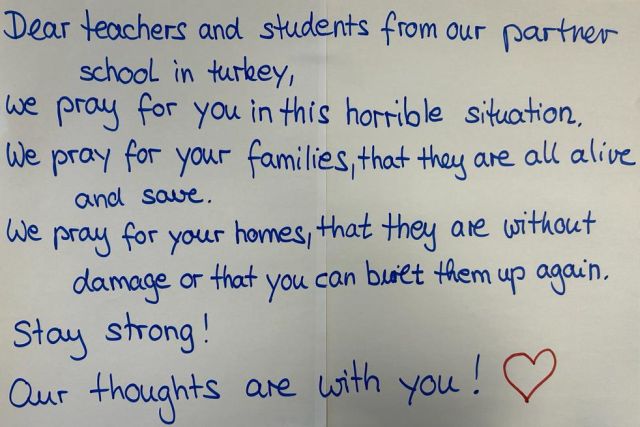 Dear teachers and students from our partner
school in turkey,
We pray for you in this horrible situation.
We pray for your families, that they are all alive
and save.
We pray for your homes, that they are without
damage or that you can built them up again.
Stay strong!
Our thoughts are with you!